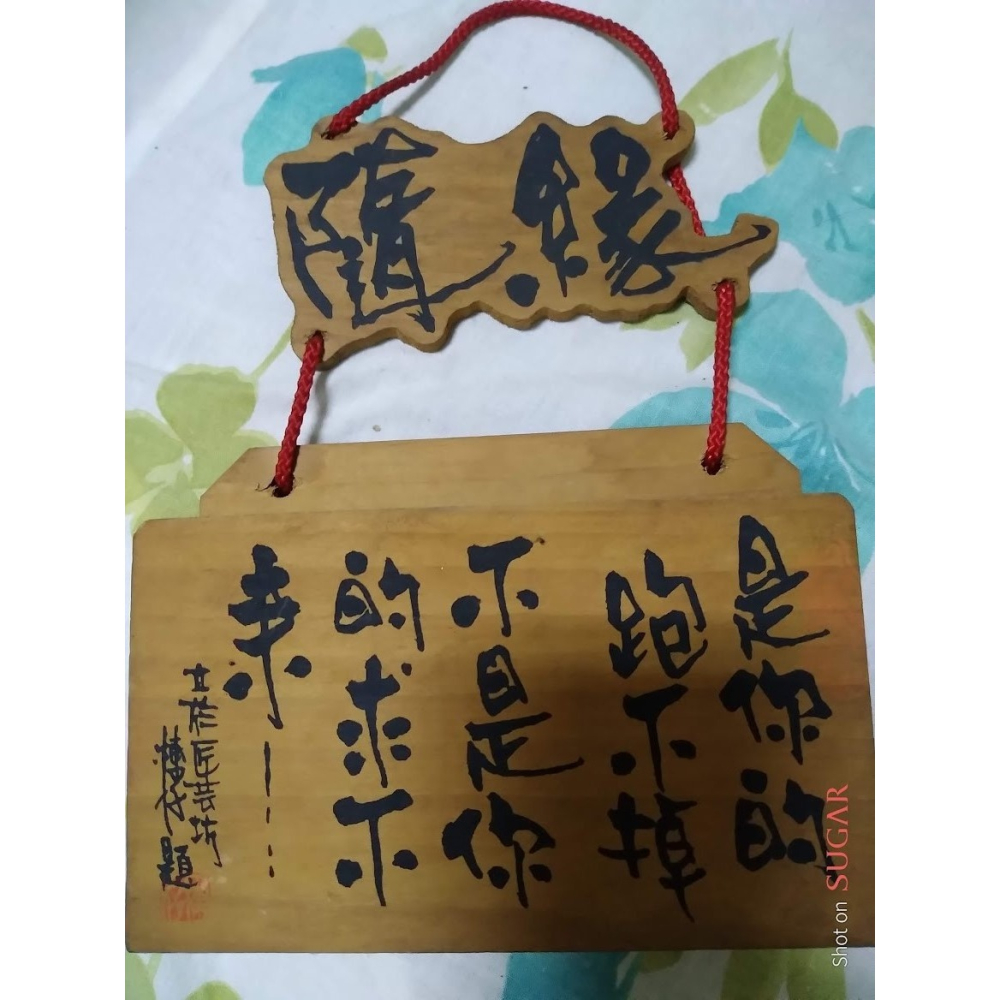 隨緣
是你的
跑不掉
不是你
的求不
來
匠芸坊
題
Shot on SUGAR